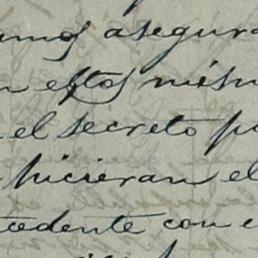 amos asegura
n estos mism
n el secreto p
hicieran el
cedente con